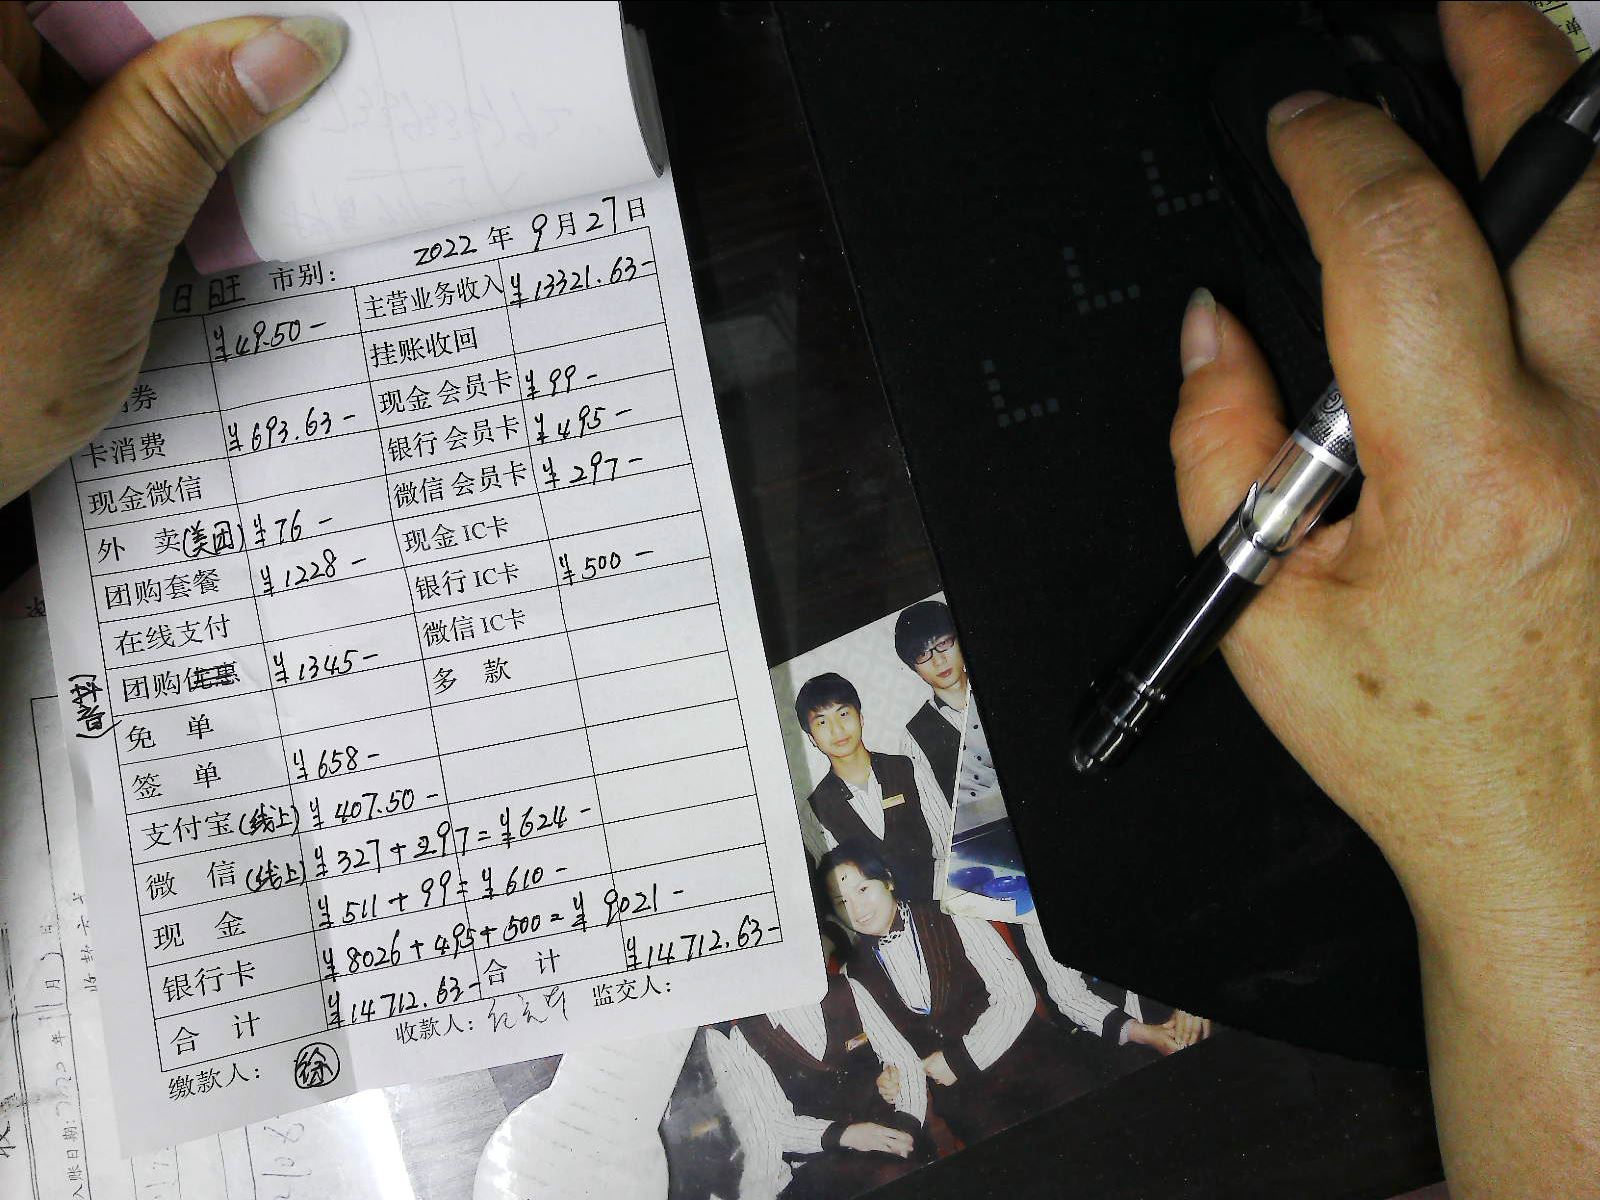 2022年9月27日
日旺 市别:
¥49.50- 主营业务收入 ¥13321.63-
券 挂账收回
卡消费 ¥693.63- 现金会员卡 ¥99-
现金微信 银行会员卡 ¥495-
外 卖(美团) ¥76- 微信会员卡 ¥297-
团购套餐 ¥1228- 现金IC卡
在线支付 银行IC卡 ¥500-
团购优惠 ¥1345- 微信IC卡
(抖音)
免 单 多 款
签 单 ¥658-
支付宝(线上) ¥407.50-
微 信(线上) ¥327+297=¥624-
现 金 ¥511+99=¥610-
银行卡 ¥8026+495+500=¥9021-
合 计 ¥14712.63- 合 计 ¥14712.63-
缴款人: 徐 收款人: 监交人: